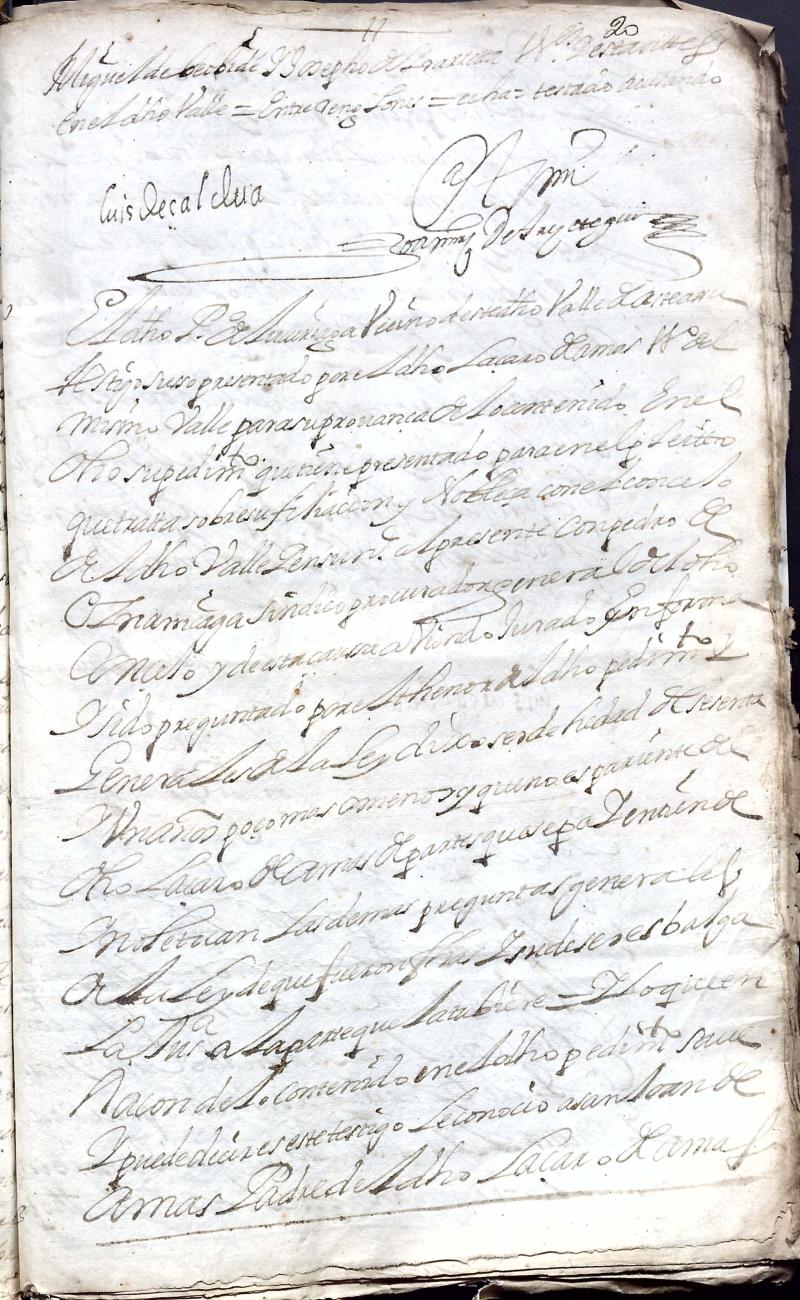 11
20
Miguel de Y Josepho de V.os de
en el dho Valle = Entre Renglones = = testado
Luis de çaldiva
Ante mi
Martinez De Arextegui
El dho P.o de Vecino deste dho Valle de Arteaga
testigo suso presentado por el dho Lacaro de Amas V.o del
mismo Valle para su provanca de lo contenido En el
dho su pedim.to que tiene presentado para en el pleitto
que tratta sobre su filiacion y Nobleca con el Concejo
de el dho Valle Y en su n.e al presente Con pedro de
sindico procurador general de el dho
Concejo y desta caussa aviendo Jurado En forma
Y sido preguntado por el thenor de el dho pedim.to y
Generales de la Ley dixo ser de hedad de sesenta
Y Un años poco mas o menos y que no es pariente del
dho Lacaro de Amas de partes que sepa Y entiende
Y no le tocan las demas preguntas generales
de la Ley de que fueron fhas Y su desseo es balga
La Jus.a a la parte que la tubiere = Y lo que en
Racon de lo contenido en el dho pedim.to save
Y puede decir es este testigo le conocio a san Joan de
Amas Padre de el dho Lacaro de Amas